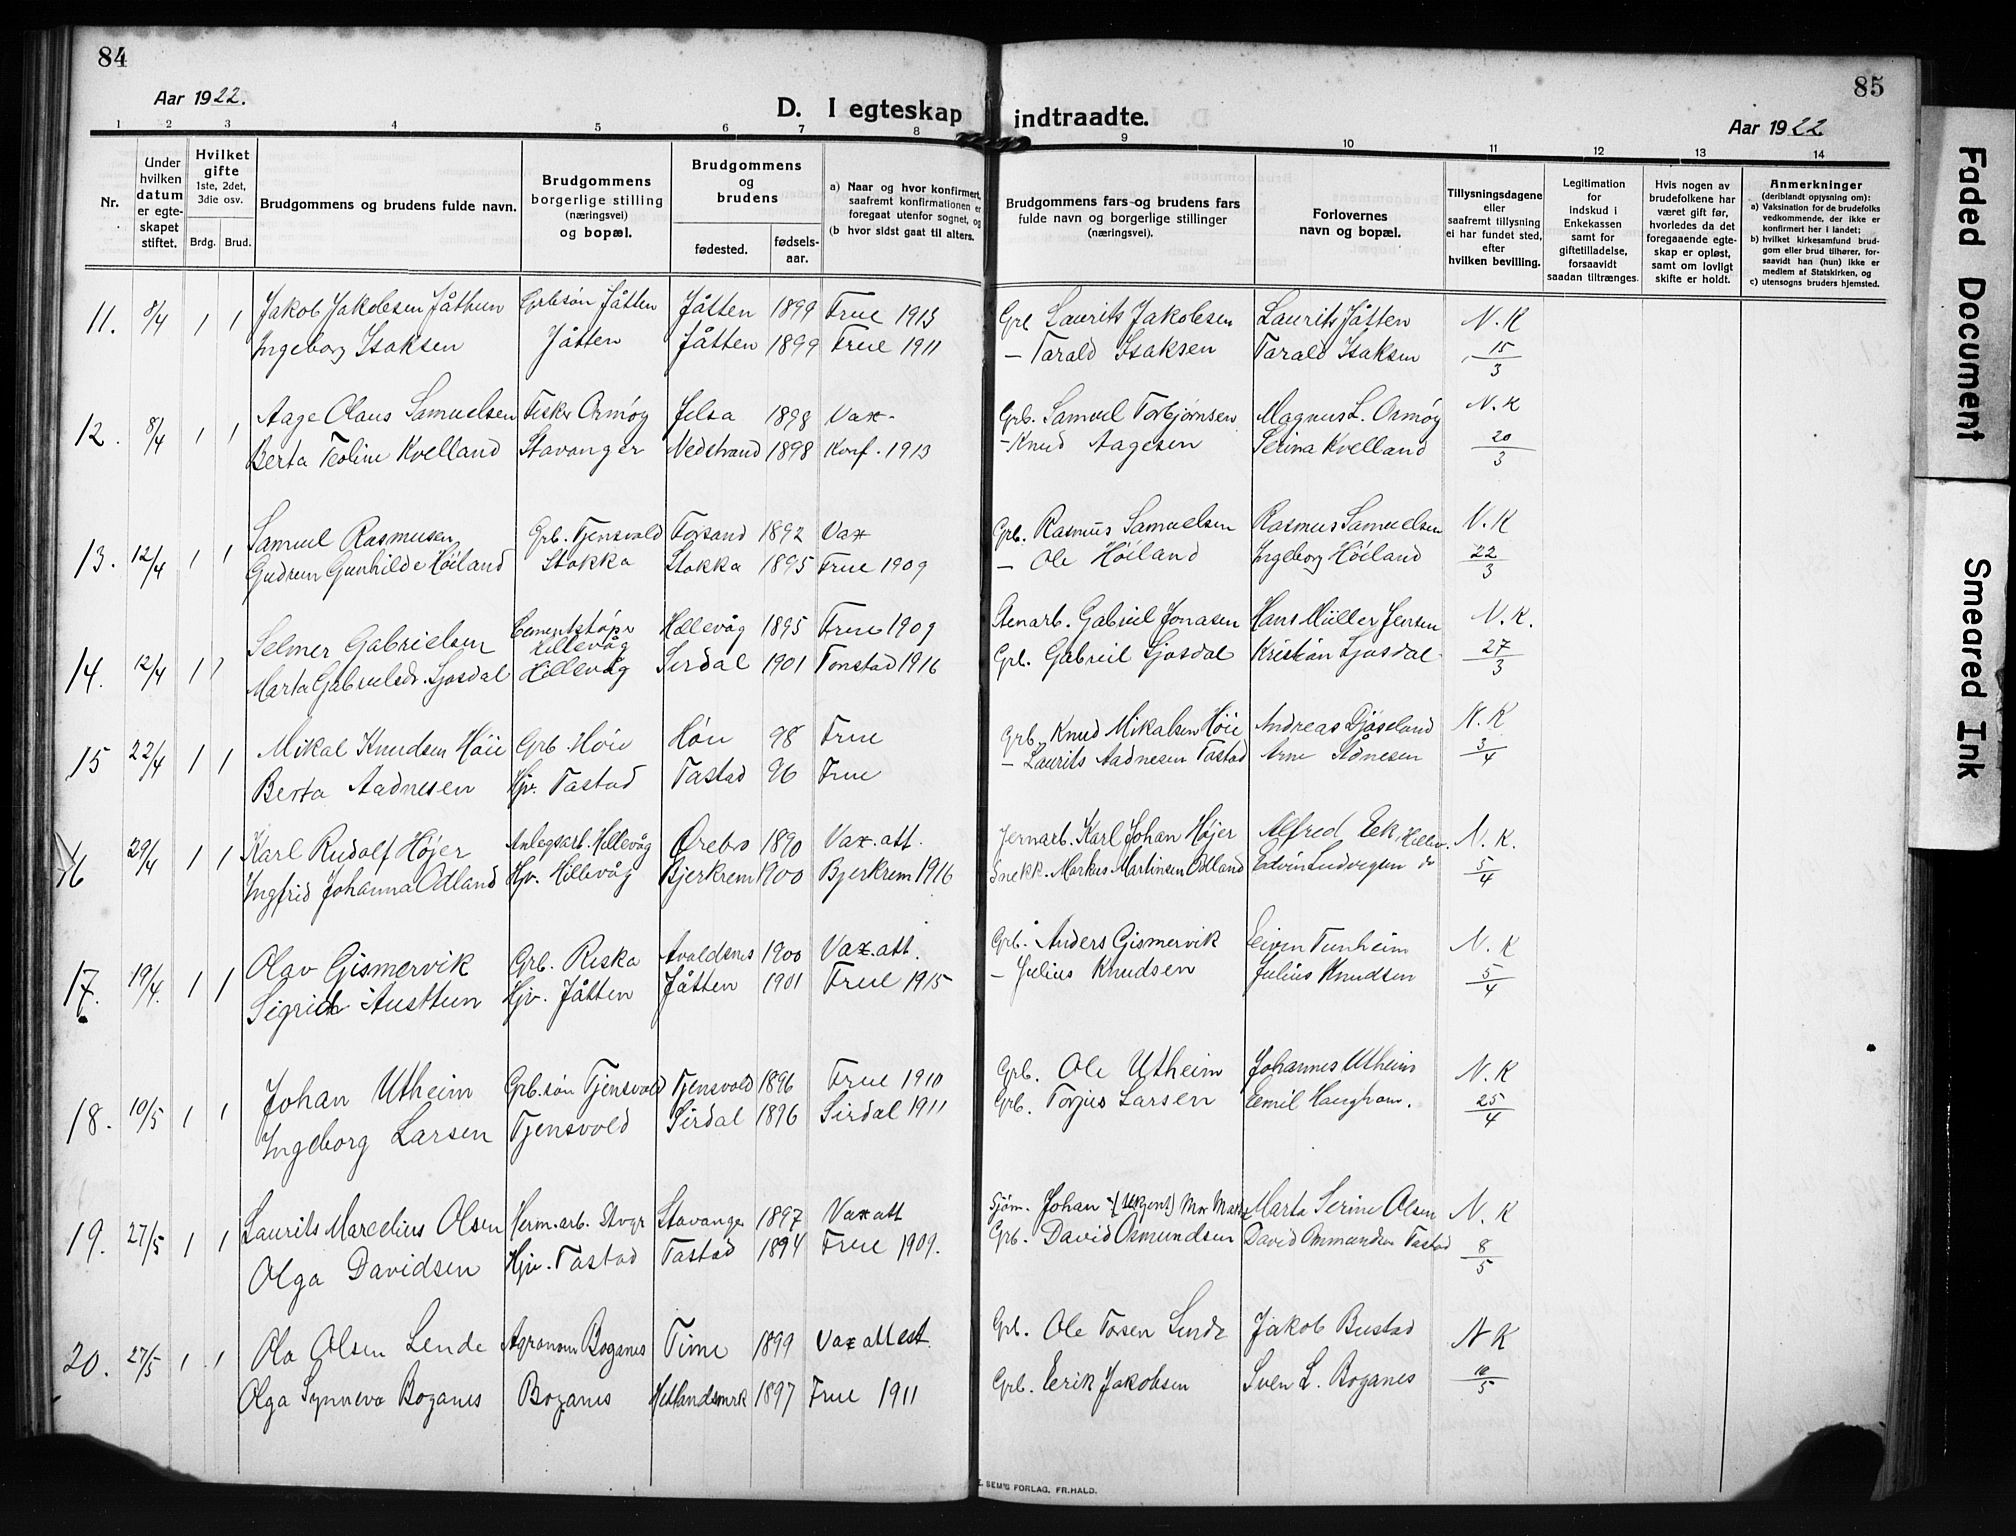 84
85
Aar 1922.
D. I egteskap indtraadte.
Aar 1922
1 2 3 4 5 6 7 8 9 10 11 12 13 14
Nr.
Under hvilken datum er egte-skapet stiftet.
Hvilket gifte 1ste, 2det, 3die osv.
Brdg. Brud.
Brudgommens og brudens fulde navn.
Brudgommens borgerlige stilling (næringsvei) og bopæl.
Brudgommens og brudens
fødested. fødsels-aar.
a) Naar og hvor konfirmert, saafremt konfirmationen er foregaat utenfor sognet, og
(b hvor sidst gaat til alters.
Brudgommens fars og brudens fars fulde navn og borgerlige stillinger (næringsvei).
Forlovernes navn og bopæl.
Tillysningsdagene eller saafremt tillysning ei har fundet sted, efter hvilken bevilling.
Legitimation for indskud i Enkekassen samt for giftetilladelse, forsaavidt saadan tiltrænges.
Hvis nogen av brudefolkene har været gift før, hvorledes da det foregaaende egte-skap er opløst, samt om lovligt skifte er holdt.
Anmerkninger (deriblandt opjysning om):
a) Vaksination for de brudefolks vedkommende, der ikke er konfirmert her i landet;
b) hvilket kirkesamfund brud-gom eller brud tilhører, for-saavidt han (hun) ikke er medlem af Statskirken, og
c) utensogns bruders hjemsted.
11. 8/4 1 1 Jakob Jakobsen Jåthun Grbsøn Jåtten Jåtten 1899 Frue 1913 Grb Laurits Jakobsen Laurits Jåtten N.K
Ingeborg Isaksen Jåtten Jåtten 1899 Frue 1911 – Tarald Isaksen Tarald Isaksen 15/3
12. 8/4 1 1 Aage Olaus Samuelsen Fisker Ormøy Jelsa 1898 Vax. Grb. Samuel Torbjørnsen Magnus L. Ormøy N.K
Berta Teoline Kvelland Stavanger Nedstrand 1898 Konf. 1913 – Knud Aagesen Serina Kvelland 20/3
13. 12/4 1 1 Samuel Rasmusen Grb. Tjensvold Forsand 1892 Vax Grb. Rasmus Samuelsen Rasmus Samuelsen N.K
Gudrun Gunhilde Höiland Stokka Stokka 1895 Frue 1909 – Ole Höiland Ingeborg Höiland 22/3
14. 12/4 1 1 Selmer Gabrielsen Cementstøper Hillevåg Hillevåg 1895 Frue 1909 Stenarb. Gabriel Jonasen Hans Müller Jensen N.K.
Marta Gabrielsdr. Sjosdal Hillevåg Sirdal 1901 Tonstad 1916 Grb. Gabriel Sjosdal Kristian Sjosdal 27/3
15 22/4 1 1 Mikal Knudsen Høie Grb Høie Høie 98 Frue Grb. Knud Mikalsen Høie Andreas Djøseland N.K
Berta Aadnesen Hjv. Tastad Tastad 96 Frue – Laurits Aadnesen Tastad Arne Ådnesen 3/4
16 29/4 1 1 Karl Rudolf Højer Anlegsarb. Hillevåg Ørebro 1890 Vax. att. Jernarb. Karl Johan Højer Alfred Eek Hillev. N.K.
Ingfrid Johanna Odland Hjv. Hillevåg Bjerkrem 1900 Bjerkrem 1916 Snekk. Markus Martinsen Odland Edvin Ludvigsen do 5/4
17. 19/4. 1 1 Olav Gismervik Grb. Riska Avaldsnes 1900 Vax. att. Grb. Anders Gismervik Eivin Tunheim N.K
Sigrid Austtun Hjv. Jåtten Jåtten 1901 Frue 1915 – Julius Knudsen Julius Knudsen 5/4
18. 10/5 1 1 Johan Utheim Grb.søn Tjensvold Tjensvold 1896 Frue 1910 Grb. Ole Utheim Johannes Utheim N.K
Ingeborg Larsen Tjensvold Sirdal 1896 Sirdal 1911 Grb. Torjus Larsen Emil Haugham. 25/4
19. 27/5 1 1 Laurits Marcelius Olsen Herm.arb. Stvgr Stavanger 1897 Vax att Sjøm. Johan Mor Marta Marta Serine Olsen N.K
Olga Davidsen Hjv. Tastad Tastad 1894 Frue 1909. Grb. David Osmundsen David Ommundsen Tastad 8/5
20. 27/5 1 1 Ola Olsen Lende Agronom Boganes Time 1899 Vax attest Grb. Ole Tosen Lende Jakob Bustad N K
Olga Synneva Boganes Boganes Hetlandsmrk 1897 Frue 1911 Grb. Erik Jakobsen Sven L. Boganes 10/5
E. SEM'S FORLAG, FR.HALD.
Faded Document
Smeared Ink